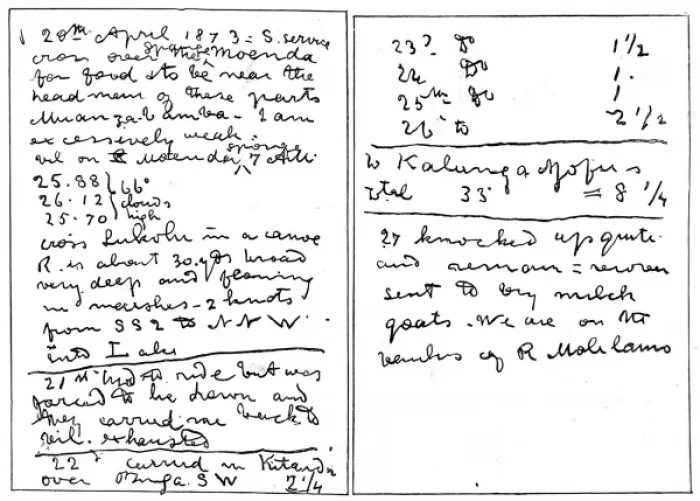 20th April 1873 = S. service
cross over the sponge Moenda
for food & to be near the
headmen of these parts
Muanzabamba - I am
excessively weak -
vil on Moenda sponge 7 A.M.
25.88 } 66°
26.12 } clouds
25.70 } high
cross Lokulu in a canoe
R. is about 30 yds broad
very deep and flowing
in marshes - 2 knots
from SSE to NNW
into Lake
21st tryd to ride but was
forced to lie down and
they carried me back to
vil. exhausted
22d carried in Kitanda
over Buga. SW 2 1/4
23d Do 1 1/2
24 Do 1.
25th Do 1
26 to 2 1/2
to Kalunganjofu's
total 33 = 8 1/4
27 knocked up quite
and remain = recover
sent to buy milch
goats. We are on the
banks of R Molilamo